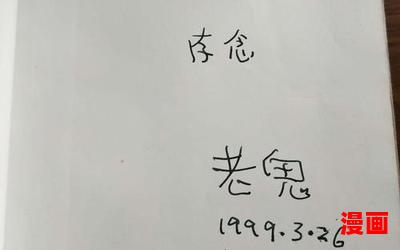 存念
老鬼
1999.3.26
漫画